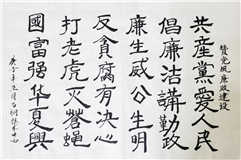 赞党风廉政建设
共產黨愛人民
倡廉洁講勤政
廉生威公生明
反貪腐有决心
打老虎灭苍蝇
國富强华夏興